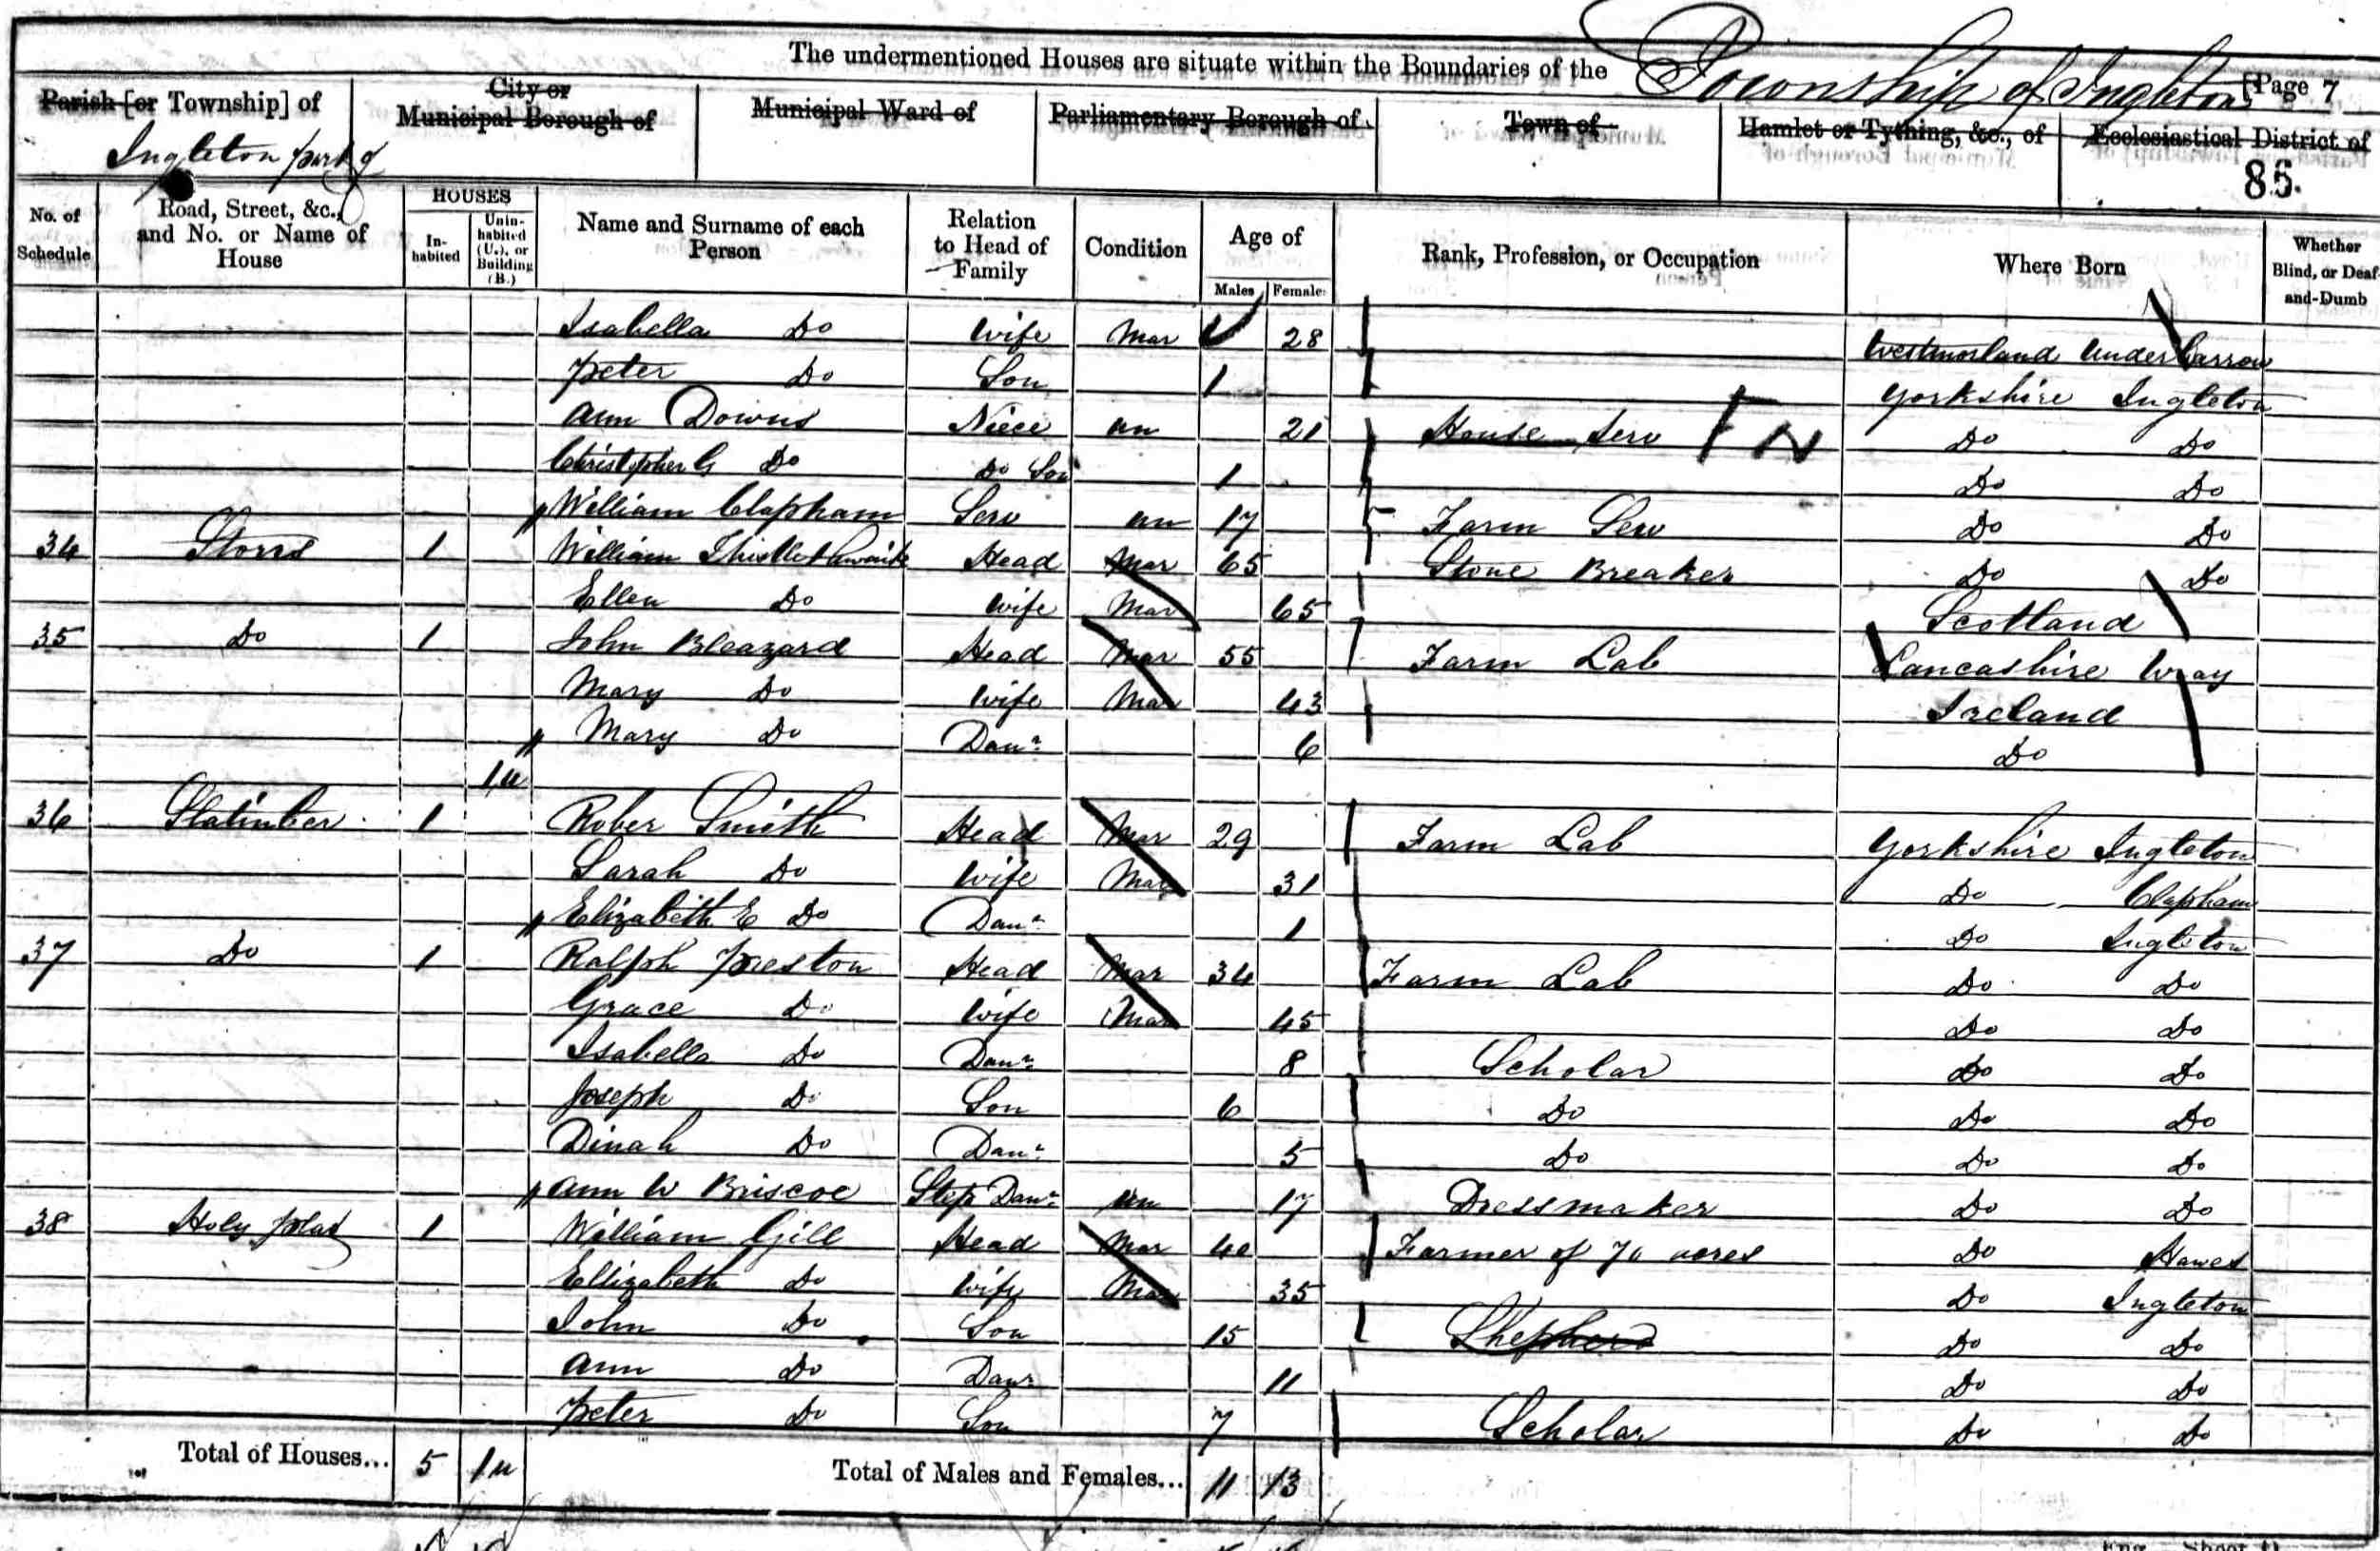 The undermentioned Houses are situate within the Boundaries of the Township of Ingleton [Page 7
Parish [or Township] of
City or Municipal Borough of
Municipal Ward of
Parliamentary Borough of
Town of
Hamlet or Tything, &c., of
Ecclesiastical District of
Ingleton part of
85.
No. of Schedule
Road, Street, &c., and No. or Name of House
HOUSES
In-habited
Unin-habited (U.), or Building (B.)
Name and Surname of each Person
Relation to Head of Family
Condition
Age of
Males
Females
Rank, Profession, or Occupation
Where Born
Whether Blind, or Deaf-and-Dumb
Isabella Do Wife Mar 28 Westmorland Underbarrow
Peter Do Son 1 Yorkshire Ingleton
Ann Downs Niece un 21 House Serv F N Do Do
Christopher G Do Do Son 1 Do Do
William Clapham Serv un 17 Farm Serv Do Do
34 Storrs 1 William Thistlethwaite Head Mar 65 Stone Breaker Do Do
Ellen Do Wife Mar 65 Scotland
35 Do 1 John Bleazard Head Mar 55 Farm Lab Lancashire Wray
Mary Do Wife Mar 43 Ireland
Mary Do Daur 6 Do
1u
36 Slatinber 1 Rober Smith Head Mar 29 Farm Lab Yorkshire Ingleton
Sarah Do Wife Mar 31 Do Clapham
Elizabeth E Do Daur 1 Do Ingleton
37 Do 1 Ralph Preston Head Mar 34 Farm Lab Do Do
Grace Do Wife Mar 45 Do Do
Isabella Do Daur 8 Scholar Do Do
Joseph Do Son 6 Do Do Do
Dinah Do Daur 5 Do Do Do
Ann W Briscoe Step Daur un 17 Dressmaker Do Do
38 Holy plat 1 William Gill Head Mar 40 Farmer of 70 acres Do Hawes
Ellizabeth Do Wife Mar 35 Do Ingleton
John Do Son 15 Shepherd Do Do
Ann Do Daur 11 Do Do
Peter Do Son 7 Scholar Do Do
Total of Houses... 5 1u Total of Males and Females... 11 13